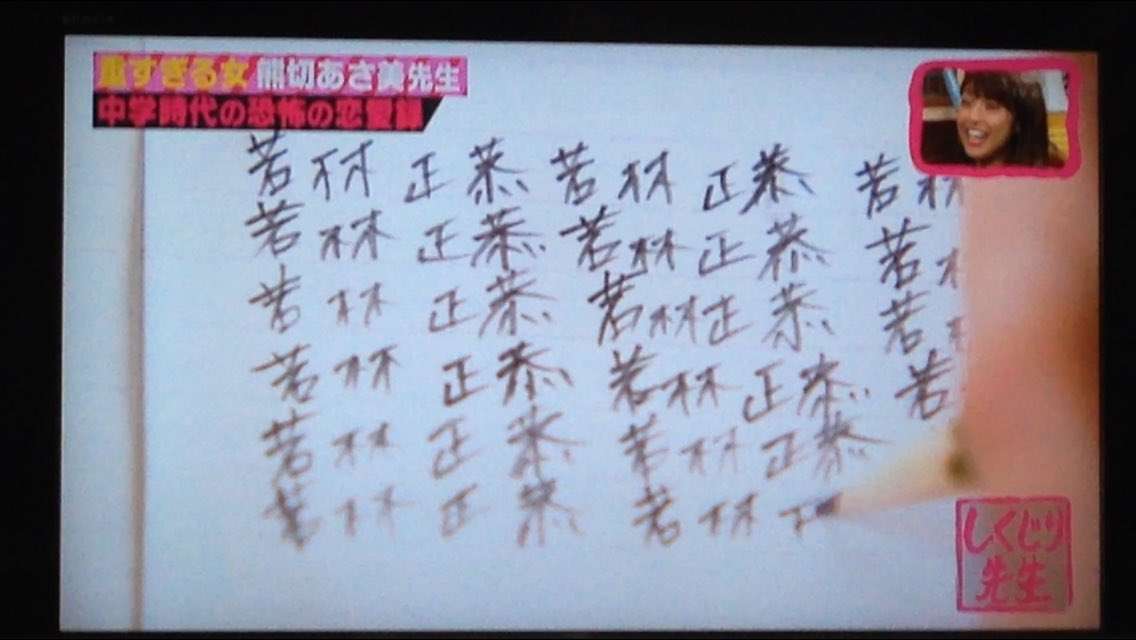 重すぎる女 熊切あさ美先生
中学時代の恐怖の恋愛録
若林 正恭 若林 正恭 若林
若林 正恭 若林 正恭 若林
若林 正恭 若林 正恭 若林
若林 正恭 若林 正恭 若
若林 正恭 若林 正恭
若林 正恭 若林
しくじり
先生